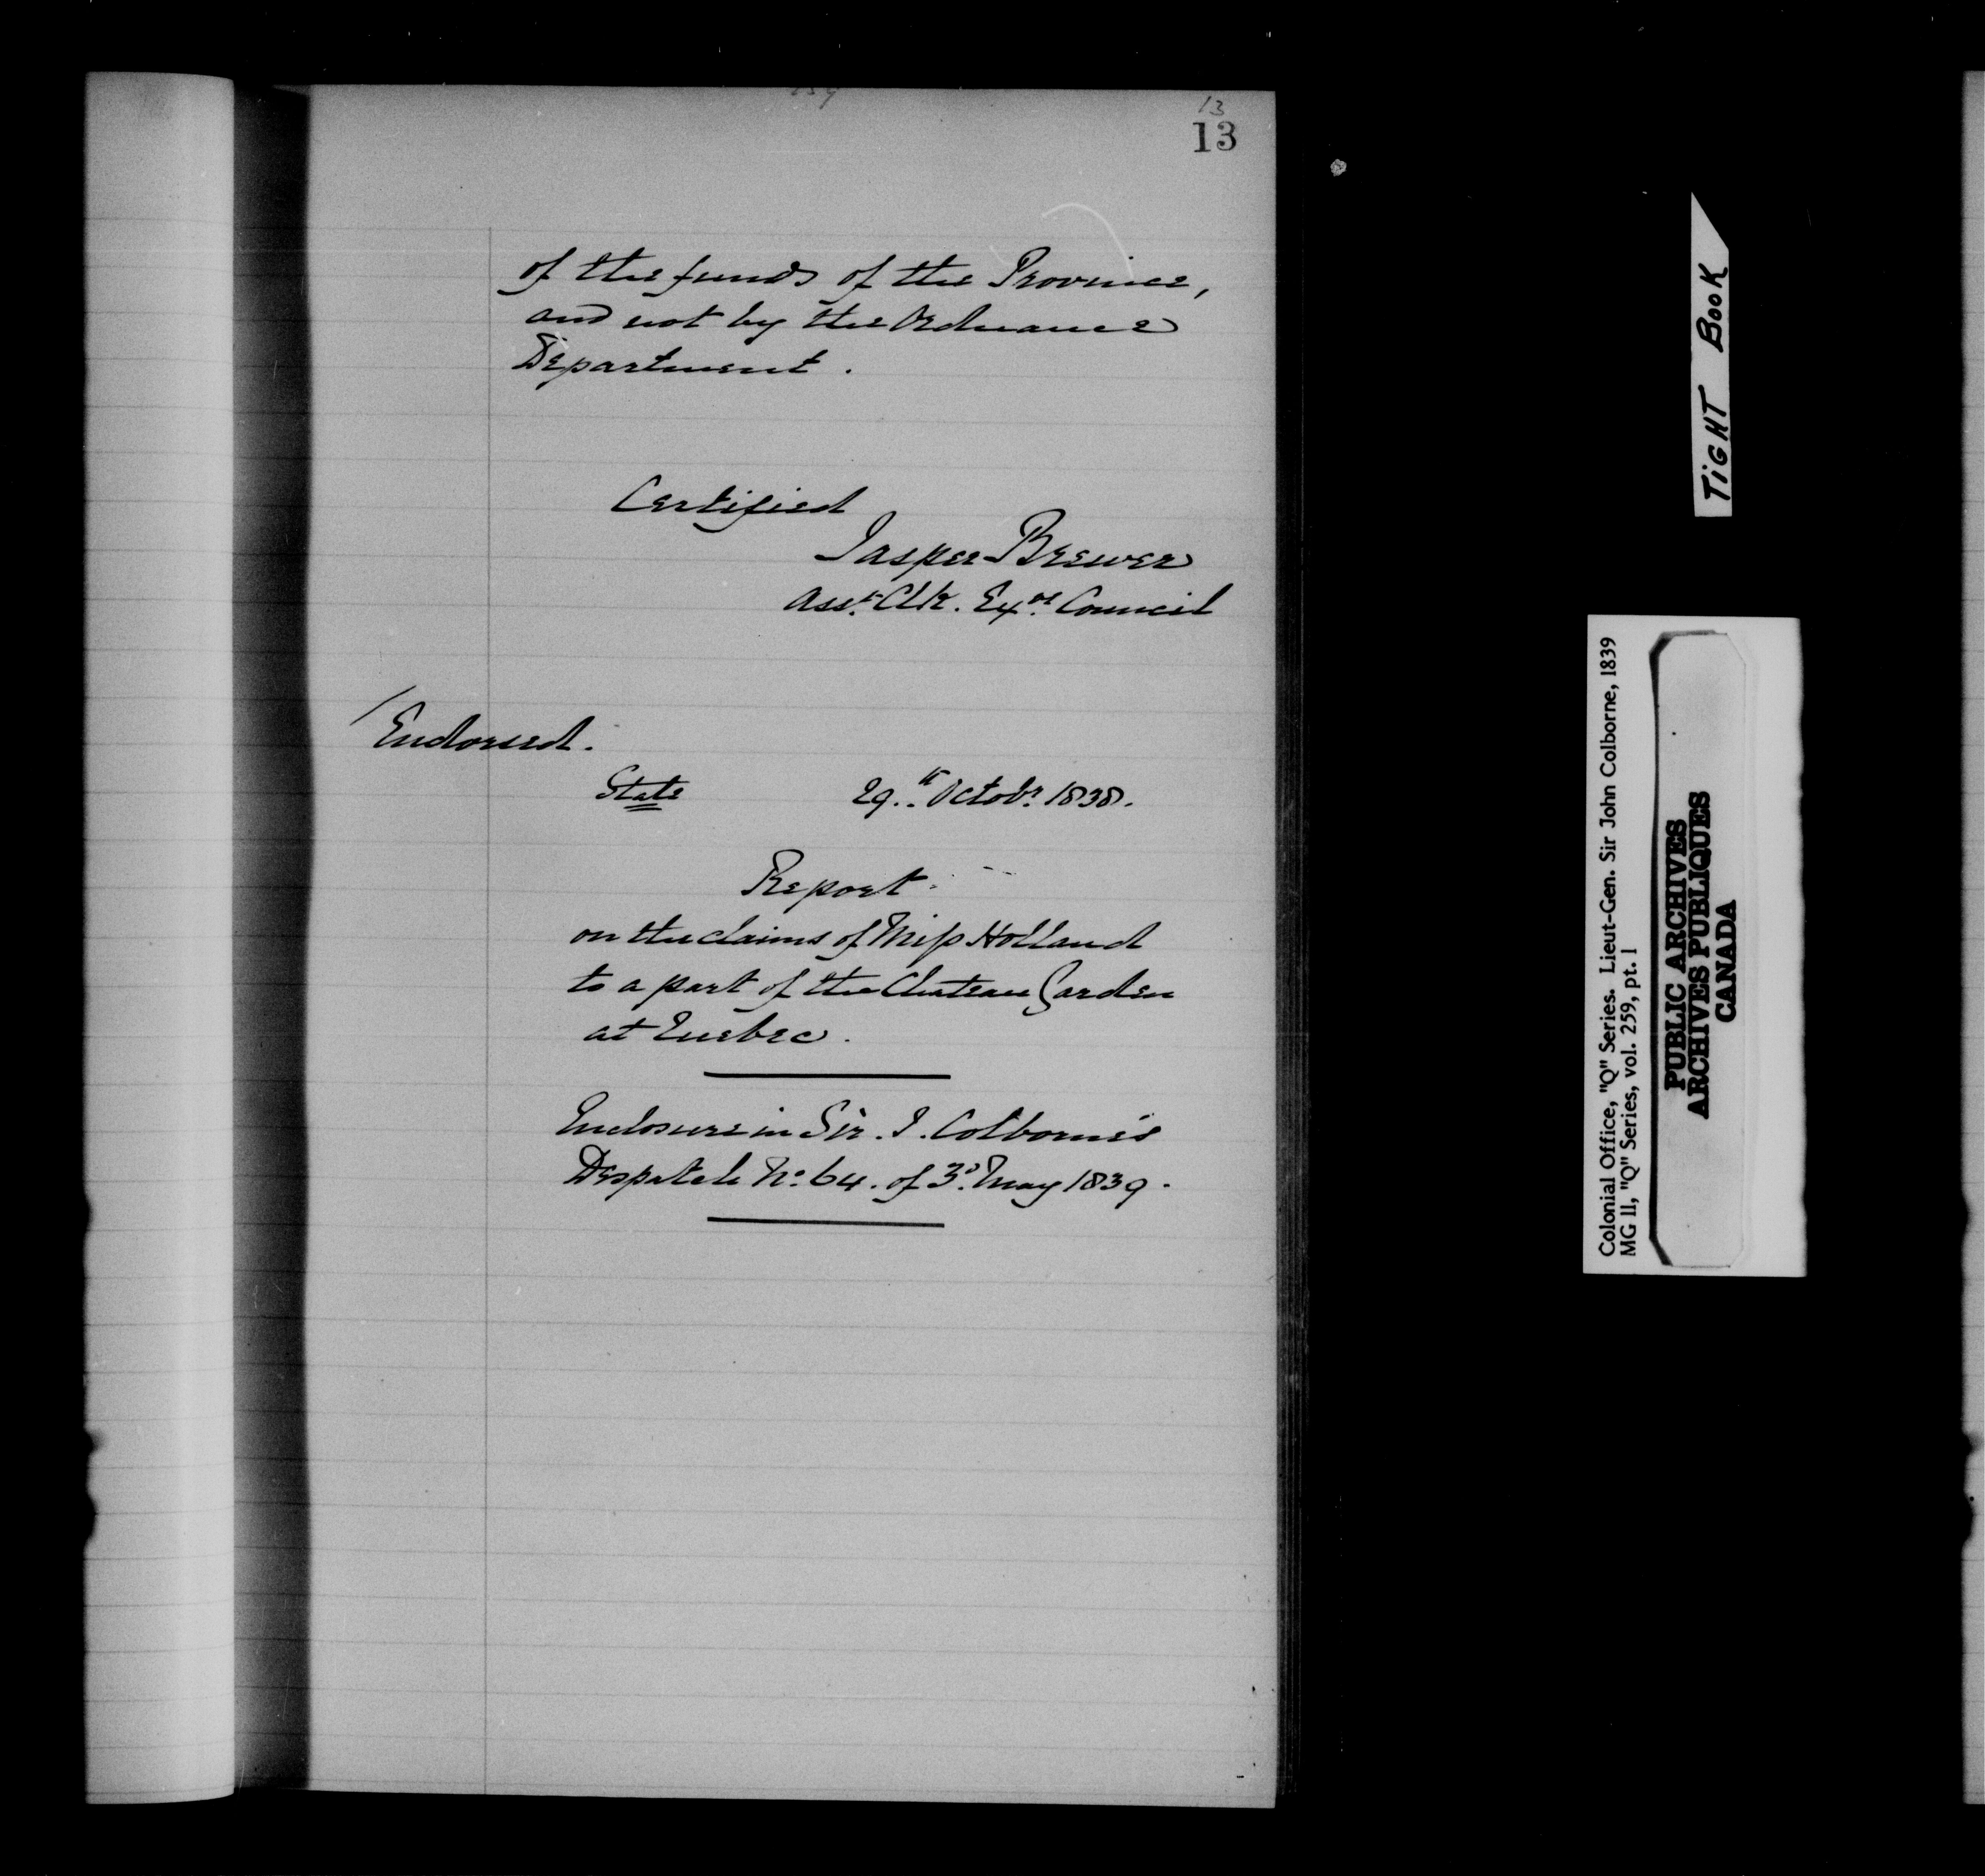 13
13
of the funds of the Province,
and not by the Ordnance
Department.
Certified
Jasper Brewer
Asst. Clk. Exve. Council
Endorsed.
State 29.th Octobr. 1838.
Report
on the claims of Miss Holland
to a part of the Chateau Garden
at Quebec.
Enclosure in Sir. J. Colborne's
Despatch No. 64. of 3d. May 1839.
TIGHT BOOK
Colonial Office, "Q" Series. Lieut-Gen. Sir John Colborne, 1839
MG 11, "Q" Series, vol. 259, pt. 1
PUBLIC ARCHIVES
ARCHIVES PUBLIQUES
CANADA